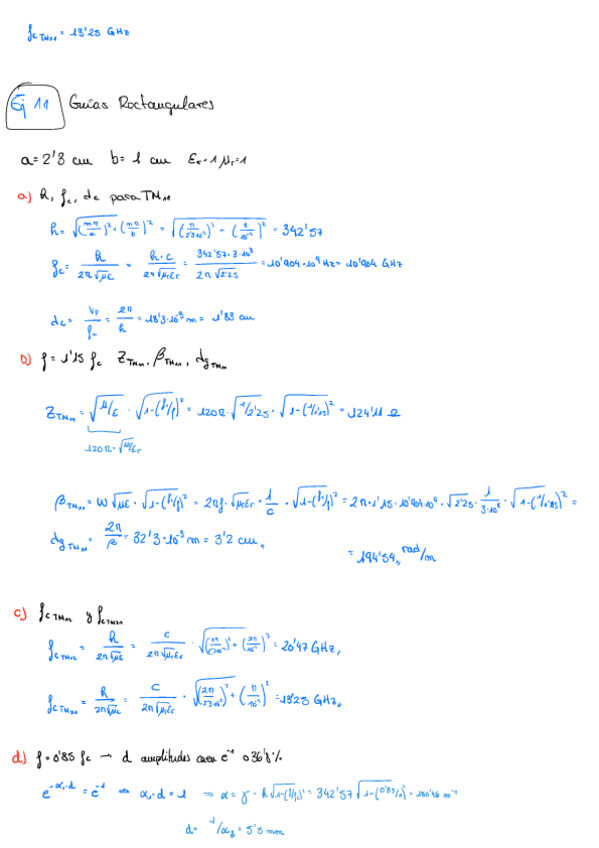 fc TM21 = 13'25 GHz
Ej 11 Guías Rectangulares
a = 2'3 cm b = 1 cm Er = 1 μr = 1
a) h, fc, dc para TM11
h = √((mπ/a)² + (nπ/b)²) = √((π/2'3·10⁻²)² - (π/10⁻²)²) = 342'57
fc = h/2π√με = h·c/2π√μrεr = 342'57·3·10⁸/2π√2'25 = 10'904·10⁹ Hz = 10'904 GHz
dc = Vp/fc = 2π/h = 18'3·10⁻³ m = 1'83 cm
b) f = 1'15 fc ZTM11, βTM11, dg TM11
ZTM11 = √μ/ε · √1-(fc/f)² = 120π · √1/2'25 · √1-(1/1'15)² = 124'11 Ω
120π · √μr/εr
βTM11 = ω√με · √1-(fc/f)² = 2πf · √μrεr · 1/c · √1-(fc/f)² = 2π·1'15·10'904·10⁹ · √2'25 · 1/3·10⁸ · √1-(1/1'15)² =
dg TM11 = 2π/β = 32'3·10⁻³ m = 3'2 cm,,
= 194'54,, rad/m
c) fc TM12 y fc TM21
fc TM12 = h/2π√με = c/2π√μrεr · √((π/2'3·10⁻²)² + (2π/10⁻²)²) = 20'47 GHz,
fc TM21 = h/2π√με = c/2π√μrεr · √((2π/2'3·10⁻²)² + (π/10⁻²)²) = 13'25 GHz,
d) f = 0'85 fc → d amplitudes caen e⁻¹ o 36'8%
e^(-α·d) = e⁻¹ ⇒ α·d = 1 ⇒ α = γ = h√1-(f/fc)² = 342'57 √1-(0'85/1)² = 180'46 m⁻¹
d = 1/α = 5'5 mm